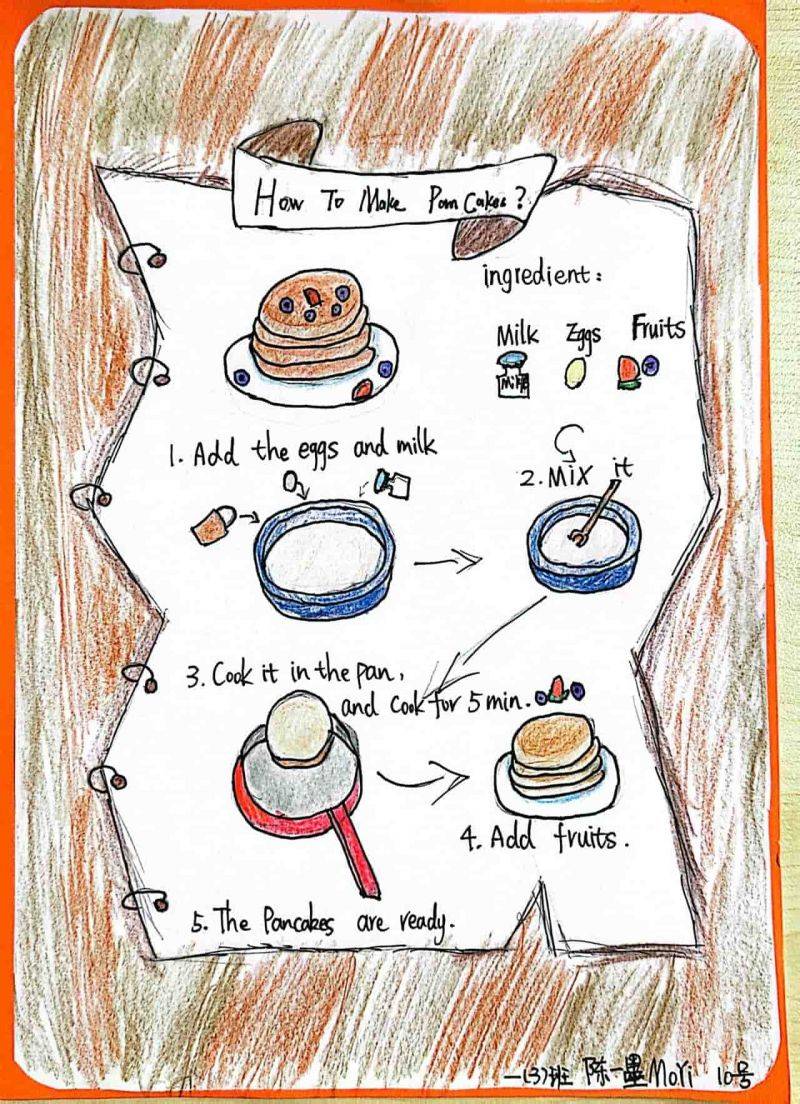 How To Make Pan Cakes?
ingredient:
Milk Eggs Fruits
Milk
1. Add the eggs and milk
2. Mix it
3. Cook it in the pan,
and cook for 5 min.
4. Add fruits.
5. The Pancakes are ready.
一(3)班 陈一墨 MoYi 10号